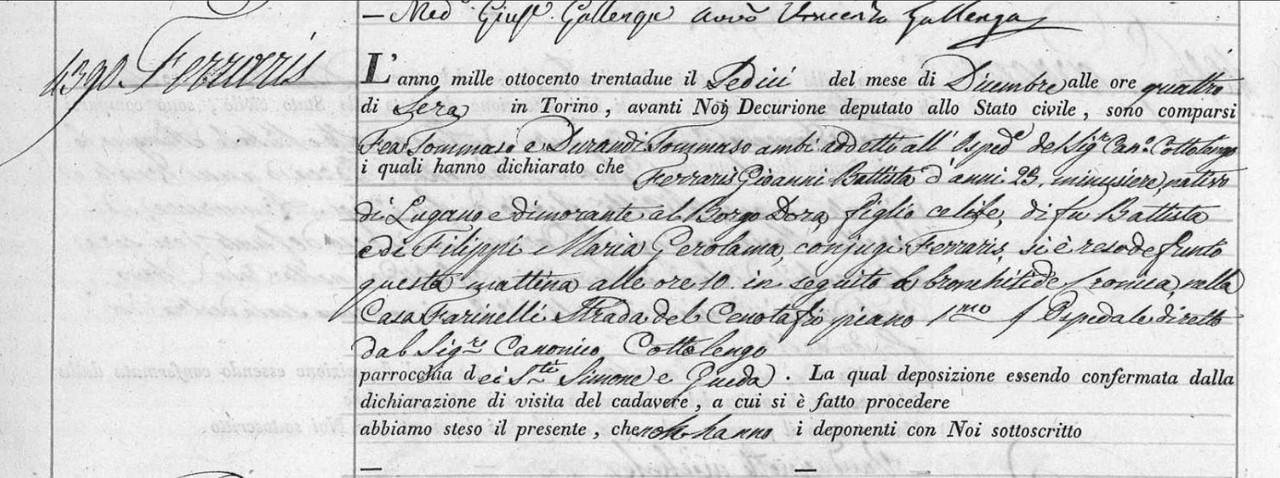 — Med.° Giusᵉ Gallenga avvᵒ Vincenzo Gallenga
1390 Ferraris
L'anno mille ottocento trentadue il Sedici del mese di Dicembre alle ore quattro
di Sera in Torino, avanti Noi Decurione deputato allo Stato civile, sono comparsi
Tommaso e Durandi Tommaso ambi addetti all' Ospedᵉ de Sigʳ Canᵒ Cottolengo
i quali hanno dichiarato che Ferraris Gioanni Battista d'anni 23, minusiere, nativo
di Lugano e dimorante al Borgo Dora, figlio celibe, di fu Battista
e di Filippi Maria Gerolama, conjugi Ferraris, si è reso defunto
questa mattina alle ore 10. in seguito a bronchitide cronica, nella
Casa Farinelli Strada del Cenotafio piano 1mo Ospedale diretto
dal Sigʳᵉ Canonico Cottolengo
parrocchia dei Sᵗⁱ Simone e Giuda. La qual deposizione essendo confermata dalla
dichiarazione di visita del cadavere, a cui si è fatto procedere
abbiamo steso il presente, che non hanno i deponenti con Noi sottoscritto
— —